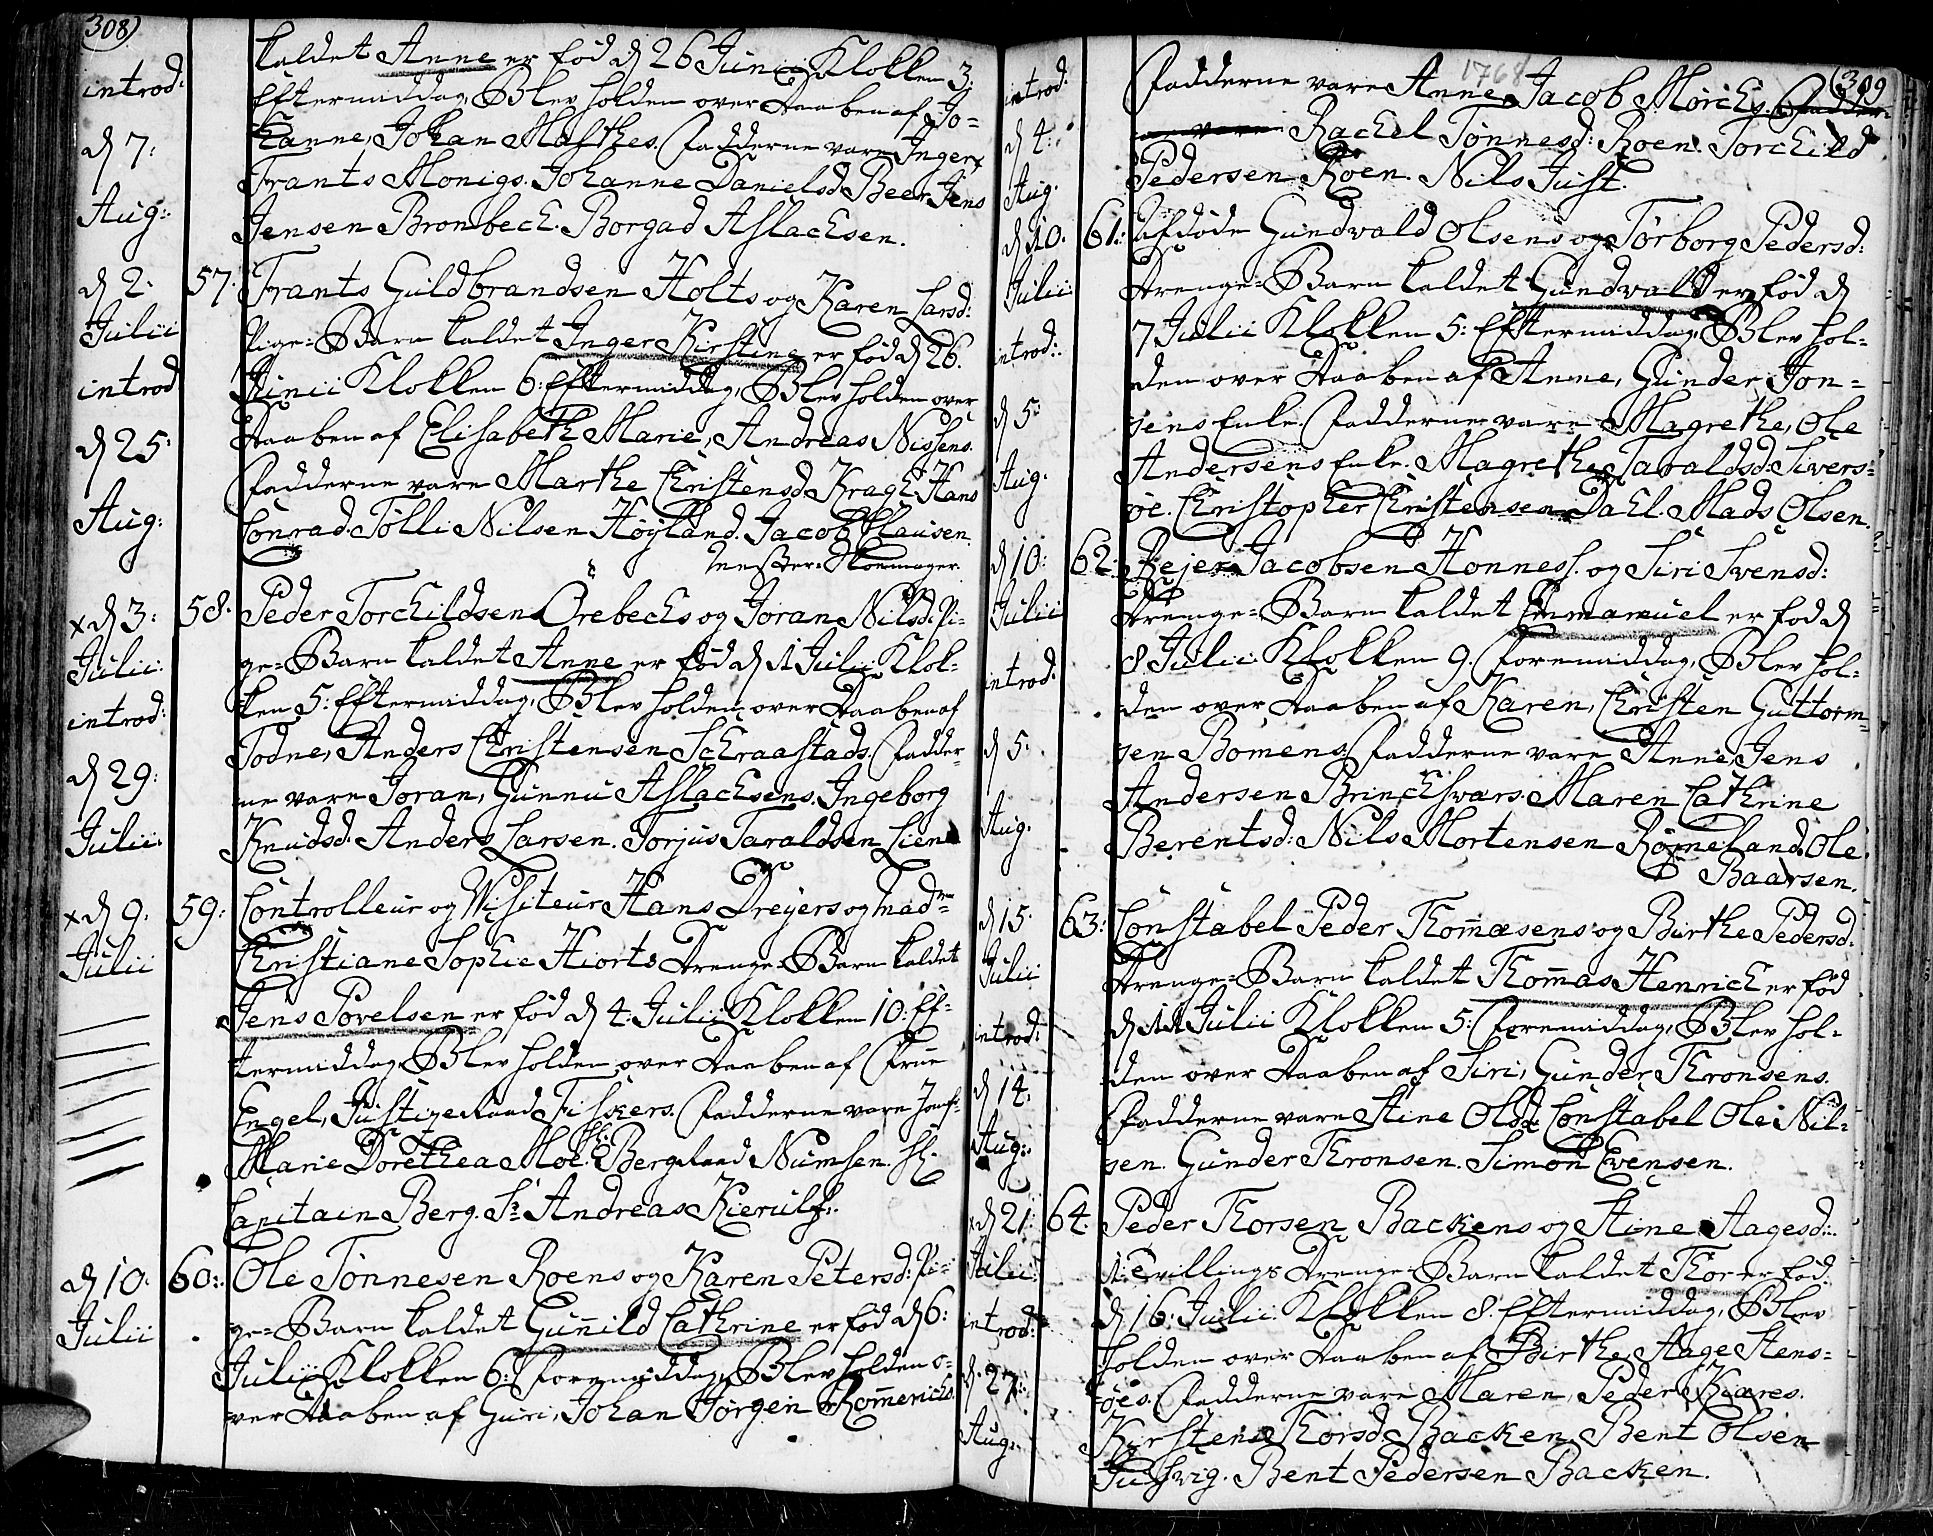 308)
introd:
d 7:
Aug:
kaldet Anne er fød d 26 Junii Klokken 3.
Eftermiddag, Blev holden over Daaben af Jo-
hanne, Johan Mathes. Fadderne vare Inger,
Frants Monigs. Johanne Danielsd. Beer. Jens
Jensen Brombech. Borgad Aslachsen.
d 2.
Julii
introd
d 25:
Aug:
57. Frants Guldbrandsen Holts og Karen Larsd:
Pige-Barn kaldet Inger Kirstine er fød d 26.
Junii Klokken 6: Eftermiddag, Blev holden over
Daaben af Elisabeth Marie, Andreas Nissens.
Fadderne vare Marthe Christensd. Kragh. Hans
Conrad. Tølli Nilsen Høyland. Jacob Clausen.
Mester Skoemager.
x d 3:
Julii:
introd:
d 29:
Julii:
58. Peder Torchildsen Orebechs og Joran Nilsd. Pi-
ge-Barn kaldet Anne er fød d 1 Julii Klok-
ken 5: Eftermiddag, Blev holden over Daaben af
Todne, Anders Christensen Schraastads. Fadder-
ne vare Joran, Gunnu Aslachsens. Ingeborg
Knudsd. Anders Larsen. Torjus Taraldsen Lien
x d 9.
Julii
59: Controlleur og Visiteur Hans Dreyers og Mad.
Christiane Sophie Hiorts Drenge-Barn kaldet
Jens Povelsen er fød d 4. Julii Klokken 10: Ef-
termiddag, Blev holden over Daaben af Frue
Engel, Justice Raad Fiskers. Fadderne vare Jomf:
Marie Dorethea Moe. Hr. Berg Raad Numsen. Hr.
Capitain Berg. Sr. Andreas Kierulf.
d 10:
Julii
60: Ole Tønnesen Roens og Karen Petersd: Pi-
ge-Barn kaldet Guñild Cathrine er fød d 6:
Julii Klokken 6: Formiddag, Blev holden o-
ver Daaben af Guri, Johan Jørgen Rom̃erichs.
1768
(309
introd:
d 4:
Aug.
Fadderne vare Anne, Jacob Mørchs. Fadder-
ne vare Rachel Tønnesd: Roen. Torchild
Pedersen Roen. Nils Just.
d 10.
Julii
introd:
d 5:
Aug.
61: Afdøde Gundvald Olsens og Tørborg Pedersd:
Drenge-Barn kaldet Gundvald er fød d
7 Julii Klokken 5: Eftermiddag, Blev hol-
den over Daaben af Anne, Gunder Jon-
sens Enke. Fadderne vare Magrethe, Ole
Andersens Enke. Magrethe Taraldsd. Sivers-
øe. Christopher Christensen Dahl. Mads Olsen.
d 10:
Julii
introd:
d 5.
Aug.
62: Rejer Jacobsen Honness. og Siri Svensd:
Drenge-Barn kaldet Emmanuel er fød d
8 Julii Klokken 9. Formiddag, Blev hol-
den over Daaben af Karen, Christen Guttorm-
sen Bomens. Fadderne vare Anne, Jens
Andersen Brinchsvars. Maren Cathrine
Berentsd: Nils Mortensen Røineland. Ole
Baarsen.
d 15.
Julii
introd:
d 14.
Aug:
63: Constabel Peder Thom̃æsens og Birthe Pedersd.
Drenge-Barn kaldet Thom̃as Henrich er fød
d 11 Julii Klokken 5: Formiddag, Blev hol-
den over Daaben af Siri, Gunder Thronsens.
Fadderne vare Stine Olsd. Constabel Ole Nil-
sen. Gunder Thronsen. Simon Evensen.
x d 21:
Julii:
introd:
d. 27:
Aug:
64: Peder Thorsen Backens og Stine Aagesd:
1: Tvillings Drenge-Barn kaldet Thor er fød
d 16: Julii: Klokken 8: Eftermiddag, Blev
holden over Daaben af Birthe, Aage Stens-
øes. Fadderne vare Maren, Peder Kiøres.
Kirstene Thorsd. Backen. Bent Olsen
Jusvig. Bent Pedersen Backen.